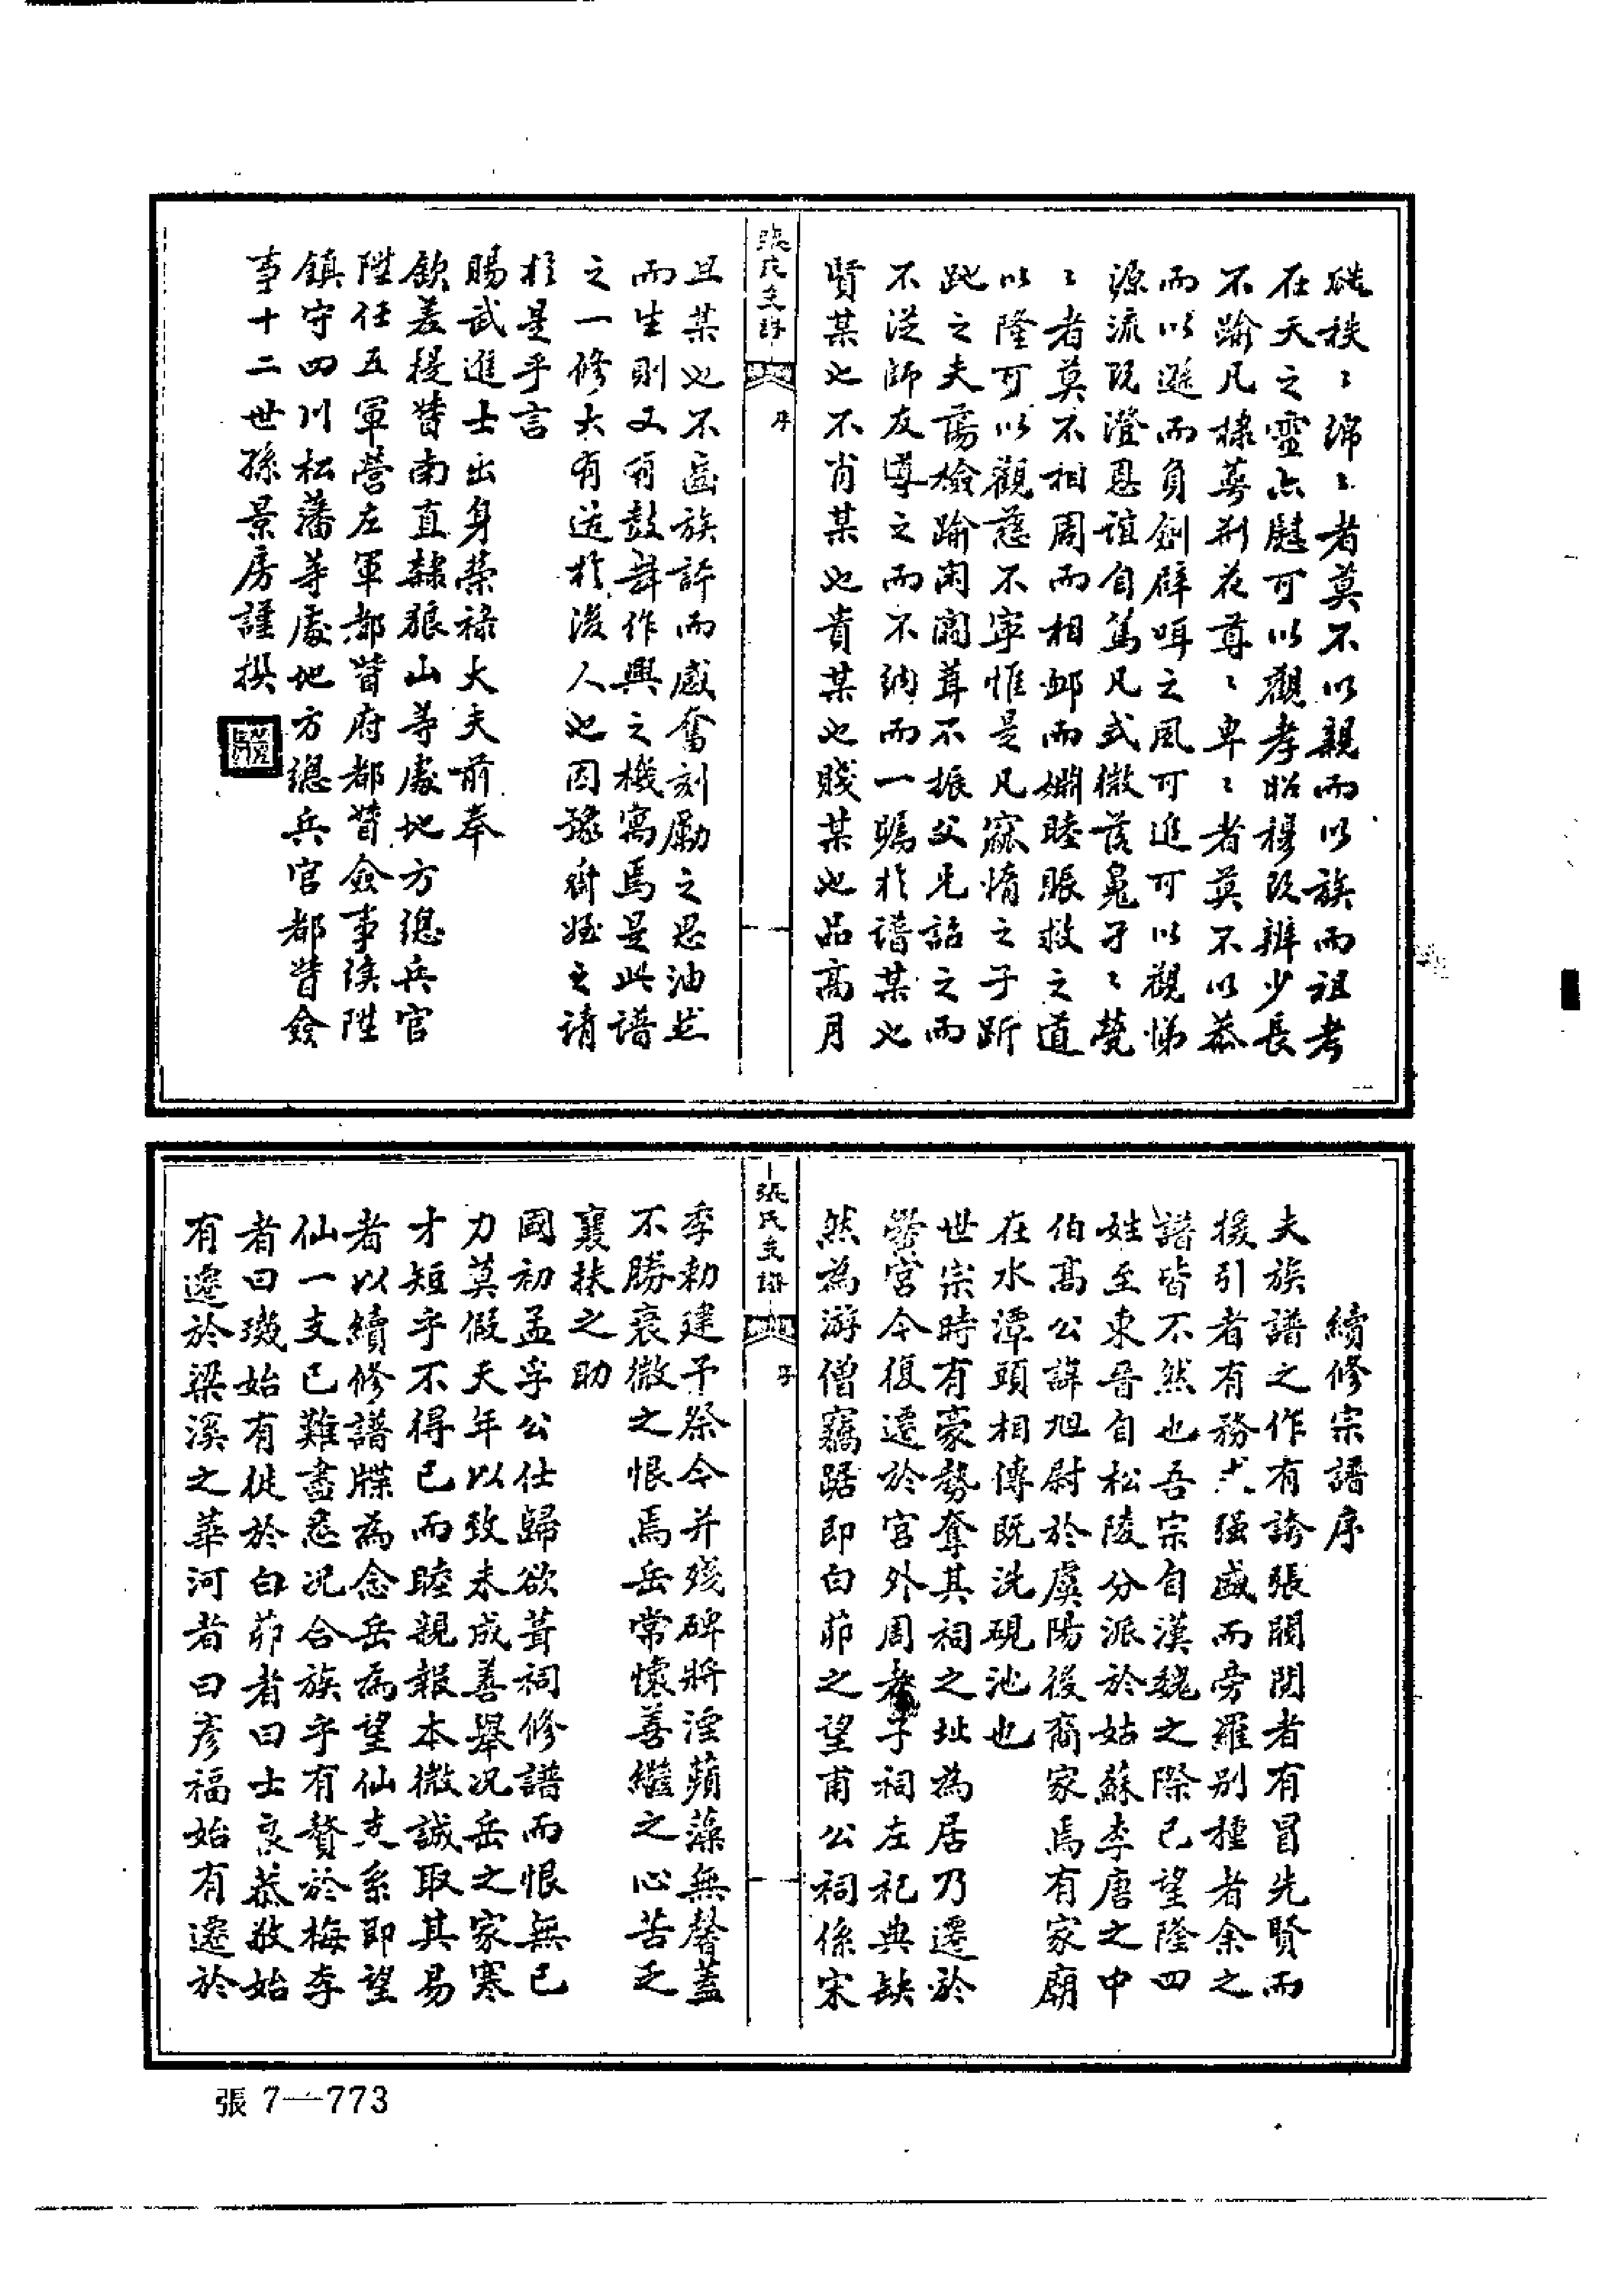 秩〻綿〻者莫不以親而以族而祖考
在天之靈亦慰可以觀孝昭穆既辨少長
不踰凡棣萼荆花尊〻卑〻者莫不以恭
而以遜而負劍辟咡之風可進可以觀悌
源流既澄恩誼自篤凡式微蒼鳧孑〻煢
〻者莫不相周而相卹而婣睦賑救之道
以隆可以觀慈不寧惟是凡窳惰之子跅
跎之夫蕩檢踰閑闒茸不振父兄詔之而
不從師友導之而不納而一矚於譜某也
賢某也不肖某也貴某也賤某也品高月
張氏支譜
序
且某也不齒族許而感奮刻勵之思油然
而生則又有鼓舞作興之機寓焉是此譜
之一修大有造於後人也因豫齋姪之請
於是乎言
賜武進士出身榮祿大夫前奉
欽差提督南直隸狼山等處地方總兵官
陞任五軍營左軍都督府都督僉事候陞
鎮守四川松藩等處地方總兵官都督僉
事十二世孫景房謹撰
續修宗譜序
夫族譜之作有誇張閥閱者有冒先賢而
援引者有務大强盛而旁羅别種者余之
譜皆不然也吾宗自漢魏之際已望隆四
姓至東晉自松陵分派於姑蘇李唐之中
伯高公諱旭尉於虞陽後裔家焉有家廟
在水潭頭相傳既洗硯池也
世宗時有豪勢奪其祠之址為居乃遷於
黌宮今復遷於宮外周孝子祠左祀典缺
然為游僧竊踞即白茆之望甫公祠係宋
張氏支譜
序
季勅建予祭今并殘碑將淫蘋藻無馨蓋
不勝衰微之恨焉岳常懷善繼之心苦乏
襄扶之助
國初孟孚公仕歸欲葺祠修譜而恨無已
力莫假天年以致未成善舉况岳之家寒
才短乎不得已而睦親報本微誠取其易
者以續修譜牒為念岳為望仙支系即望
仙一支已難盡悉况合族乎有贅於梅李
者曰璣始有徙於白茆者曰士良恭敬始
有遷於梁溪之華河者曰彥福始有遷於
張 7—773